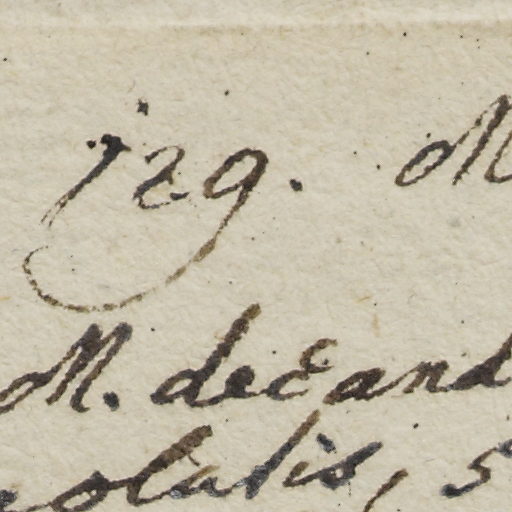 729. M
M. decand
olatis, 5